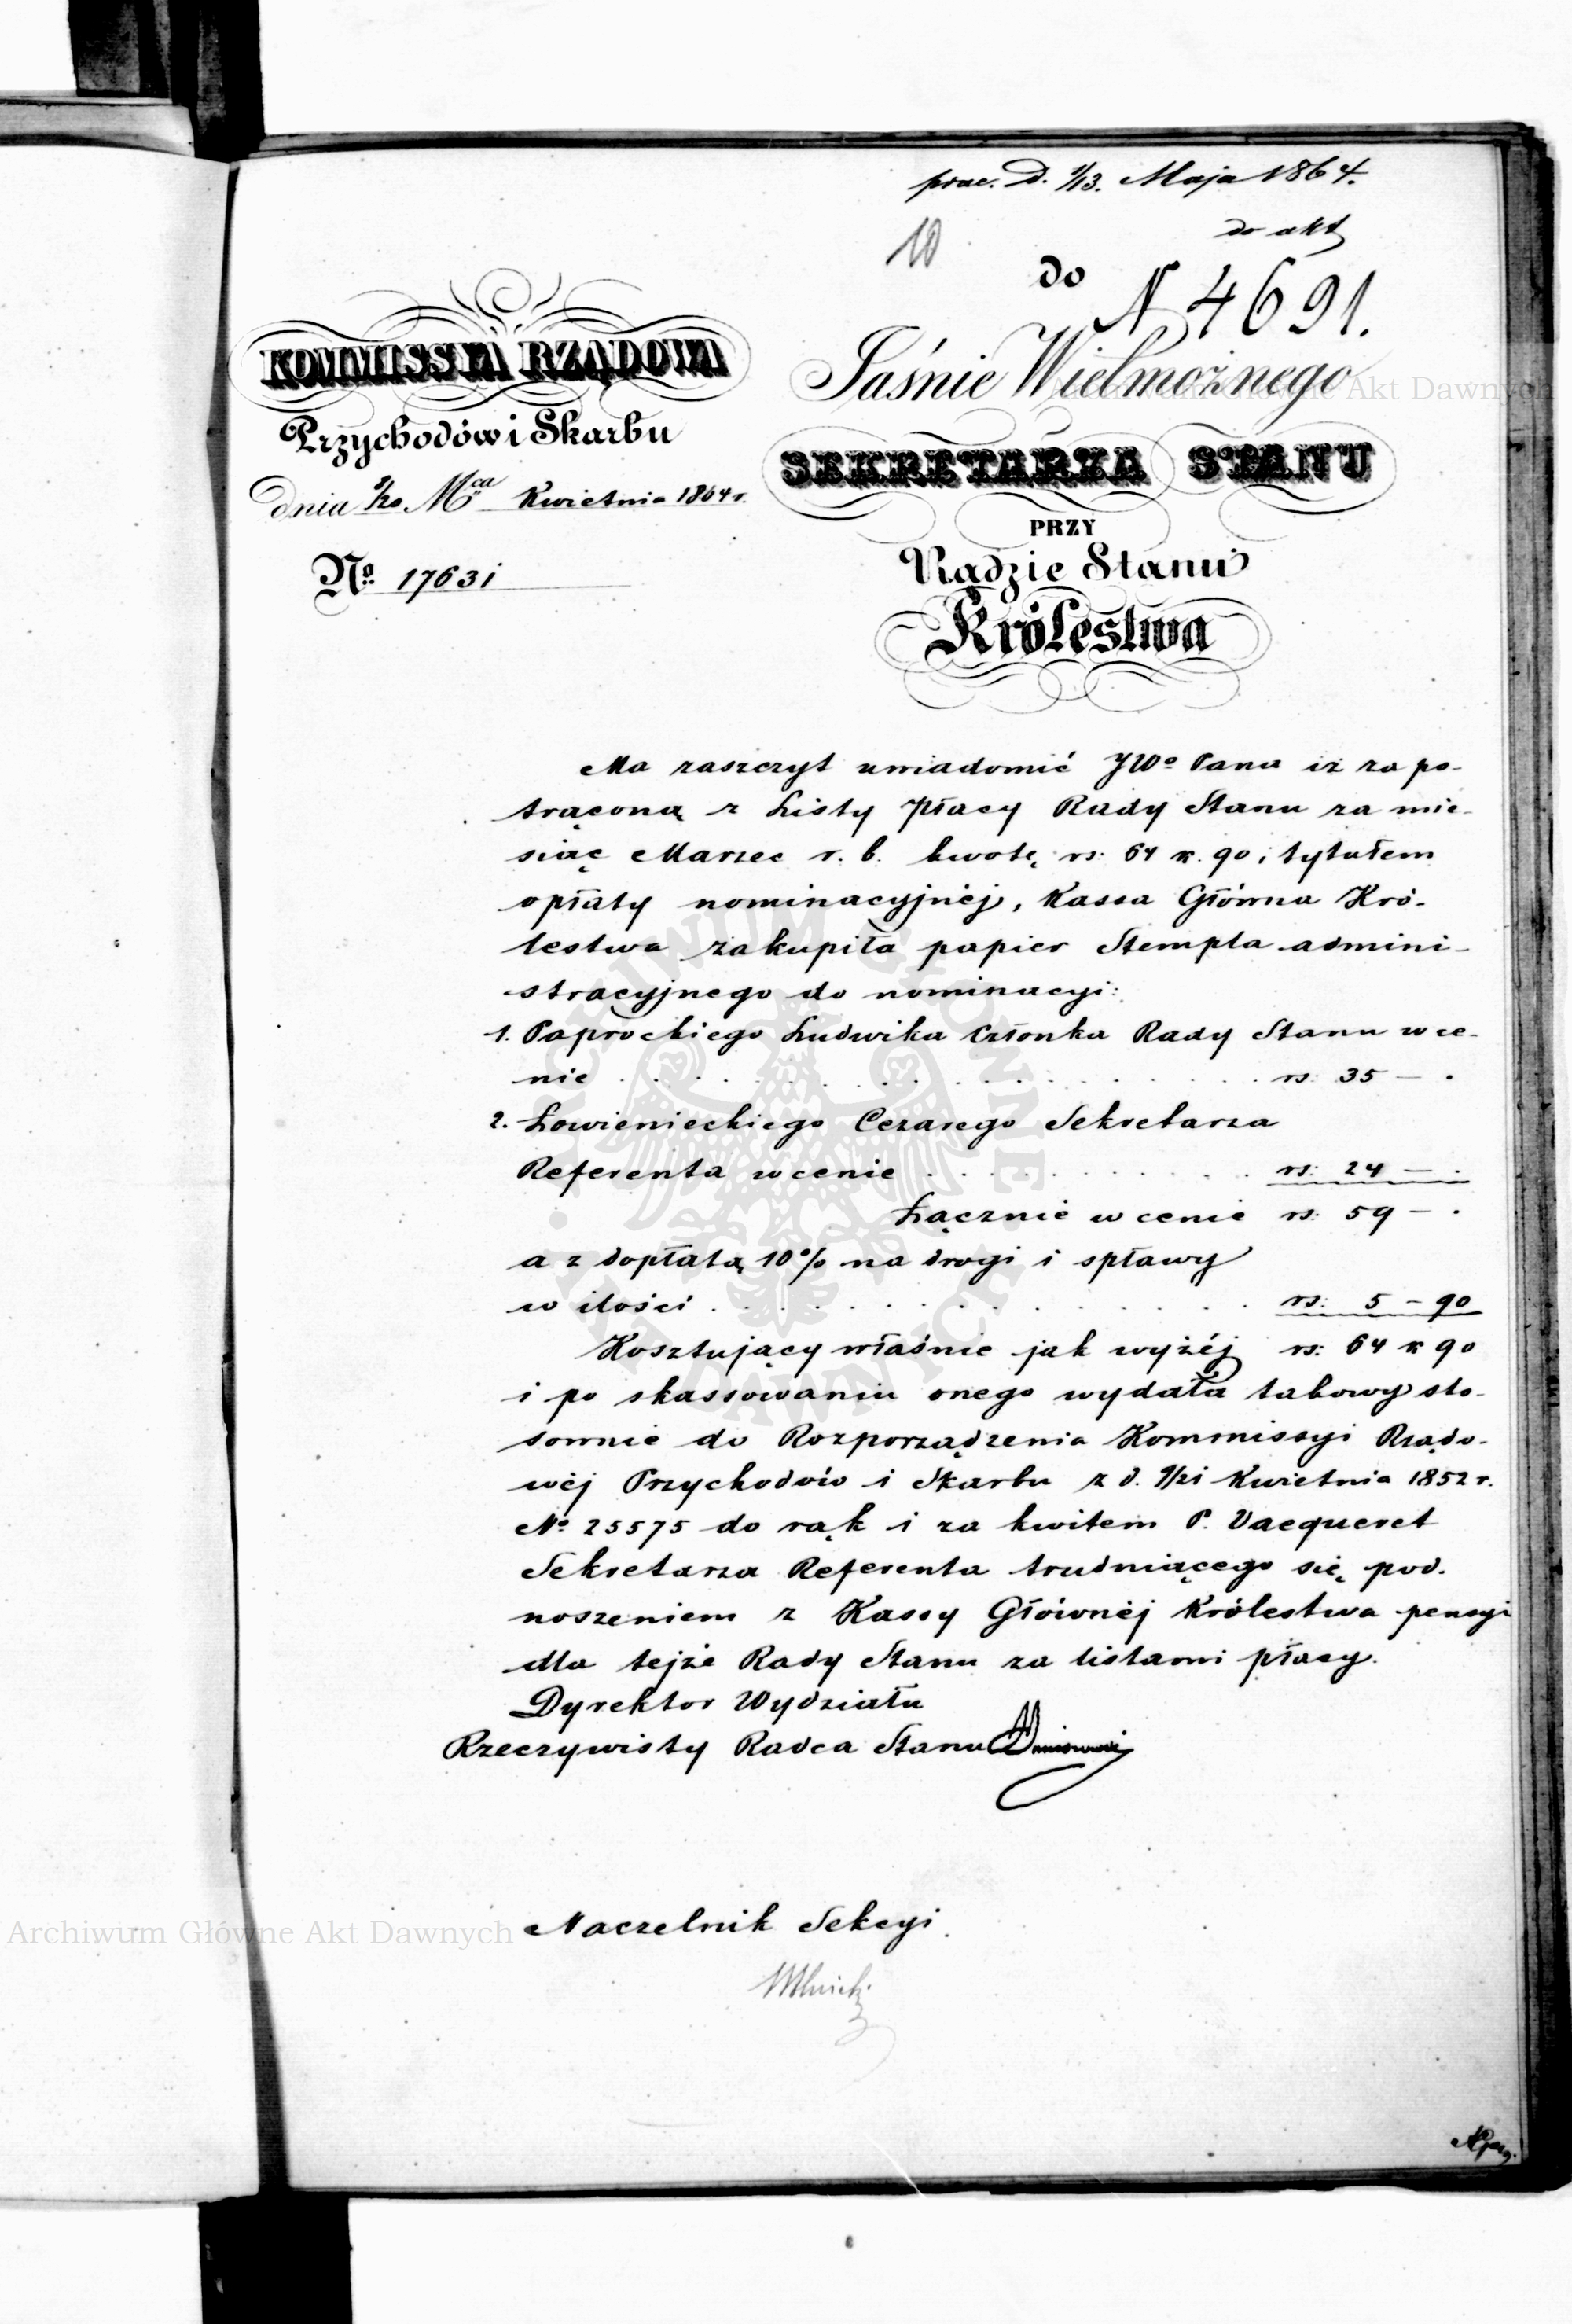 prae. d. 1/13. Maja 1864.
do akt
10
do
N 4691.
KOMMISSYA RZĄDOWA
Przychodów i Skarbu
dnia 8/20 Mca Kwietnia 1864 r.
No. 17631
Jaśnie Wielmożnego
SEKRETARZA STANU
PRZY
Radzie Stanu
Królestwa
Ma zaszczyt uwiadomić JWo Pana iż za po-
trąconą z Listy Płacy Rady Stanu za mie-
siąc Marzec r. b. kwotę rs: 64 k. 90, tytułem
opłaty nominacyjnéj, Kassa Główna Kró-
lestwa zakupiła papier Stempla admini-
stracyjnego do nominacyi:
1. Paprockiego Ludwika Członka Rady Stanu w ce-
nie . . . . . . . . . . . . rs: 35 — .
2. Łowienieckiego Cezarego Sekretarza
Referenta w cenie . . . . . . . . rs: 24 — .
Łącznie w cenie rs: 59 — .
a z dopłatą 10% na drogi i spławy
w ilości . . . . . . . . . . . . rs: 5 — 90
Kosztujący właśnie jak wyżéj rs: 64 k 90
i po skassowaniu onego wydała takowy sto-
sownie do Rozporządzenia Kommissyi Rządo-
wéj Przychodów i Skarbu z d. 9/21 Kwietnia 1852 r.
No 25575 do rąk i za kwitem P. Vacqueret
Sekretarza Referenta trudniącego się pod-
noszeniem z Kassy Głównéj Królestwa pensyi
dla tejże Rady Stanu za listami płacy.
Dyrektor Wydziału
Rzeczywisty Radca Stanu
Naczelnik Sekcyi
Archiwum Główne Akt Dawnych